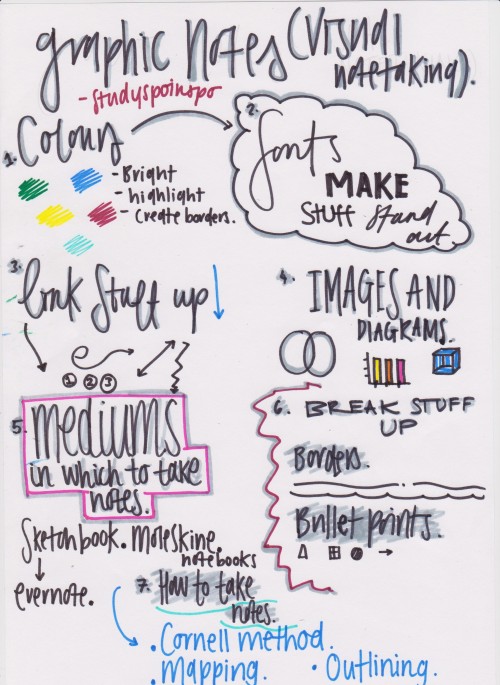 graphic Notes (Visual
notetaking).
- studyspoinspo
1. Colours
- Bright
- highlight
- Create borders.
2. fonts
MAKE
Stuff Stand
out.
3. link Stuff up
4. IMAGES AND
DIAGRAMS.
1 2 3
5. mediums
in which to take
notes.
Sketchbook. Moleskine
notebooks
evernote.
6. BREAK STUFF
UP
Borders.
Bullet prints.
7. How to take
notes.
• Cornell method.
• Mapping. • Outlining.